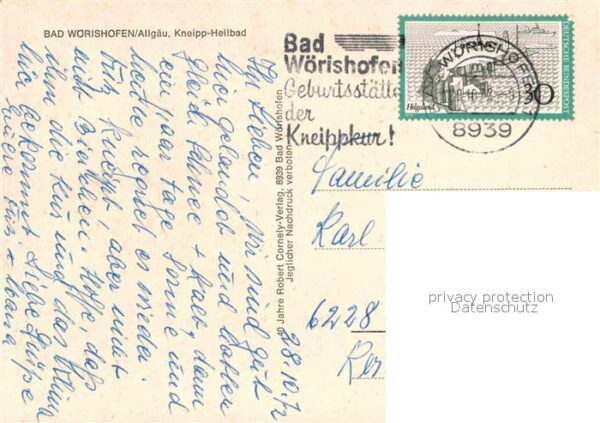 BAD WÖRISHOFEN/Allgäu, Kneipp-Heilbad
Bad
Wörishofen
Geburtsstätte
der
Kneippkur!
WÖRISHOFEN
8939
DEUTSCHE BUNDESPOST
Helgoland
30
40 Jahre Robert Cornely-Verlag, 8939 Bad Wörishofen
Jeglicher Nachdruck verboten
28.10.72
Ihr Lieben, Wir sind gut
gelandet und hatten
Schnee + kalt, dann
ein paar Tage Sonne und
heute regnet es wieder.
aber nicht
Hoffe, daß
ihm die Kur und das Klima
hier bekommt. Liebe Grüße
Familie
Karl
6228
privacy protection
Datenschutz